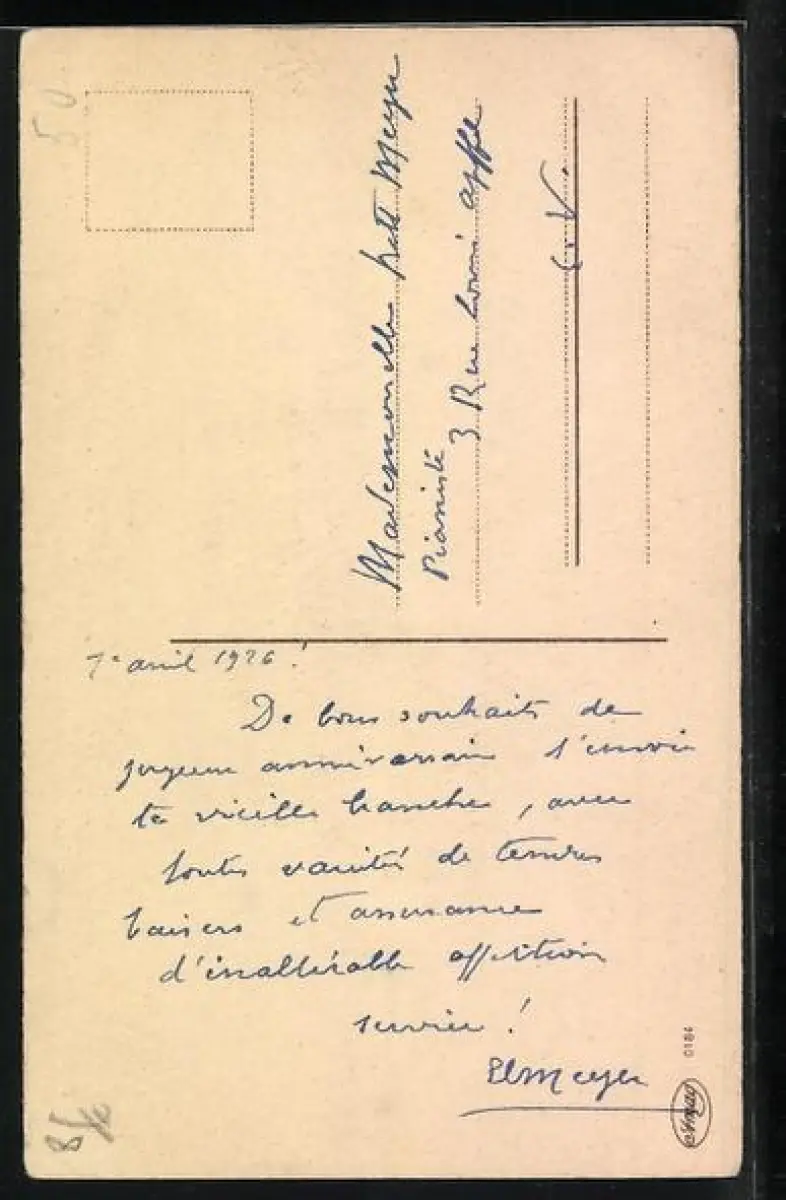 Mademoiselle Meyer
Pianiste
3 Rue Louis Apffel
E.V.
1er avril 1926!
De bons souhaits de
joyeux anniversaire t'envoie
ta vieille branche, avec
toutes variétés de tendres
baisers et assurance
d'inaltérable affection
!
Meyer
Amag
0184
50